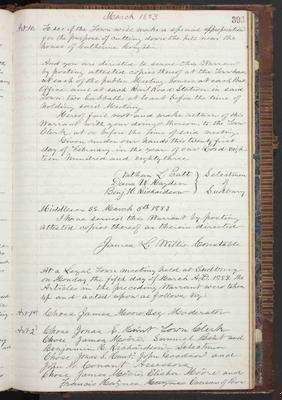 March 1883
393
Art 10. To see if the Town will make a special appropriation
for the purpose of cutting down the hill near the
house of Catherine
And you are directed to serve this Warrant
by posting attested copies thereof at the Town house
at each of the public Meeting houses at each Post
Office and at each Rail Road Station in said
Town two Sabbaths at least before the time of
holding said Meeting
Hereof fail not and make return of this
Warrant with your doings thereon to the Town
Clerk at or before the time of said meeting
Given under our hands this twenty first
day of February in the year of our Lord eigh-
teen Hundred and eighty three
Nathan L Pratt
Dana W. Hayden
Benj. H. Richardson
Selectmen
of
Sudbury
Middlesex SS. March 5th 1883
I have served this Warrant by posting
attested copies thereof as therein directed
James L Willis Constable
At a Legal Town meeting held at Sudbury
on Monday the fifth day of March A.D. 1883 the
Articles in the preceding Warrant were taken
up and acted upon as follows viz
Art 1st Chose James Moore Esq Moderator
Art 2d Chose Jonas S. Hunt Town Clerk
Chose James Moore Samuel Hunt and
Benjamin H Richardson Selectmen
Chose Jonas S. Hunt John Goodnow and
John N. Conant Assessors
Chose James Moore and
Francis Overseers of Poor